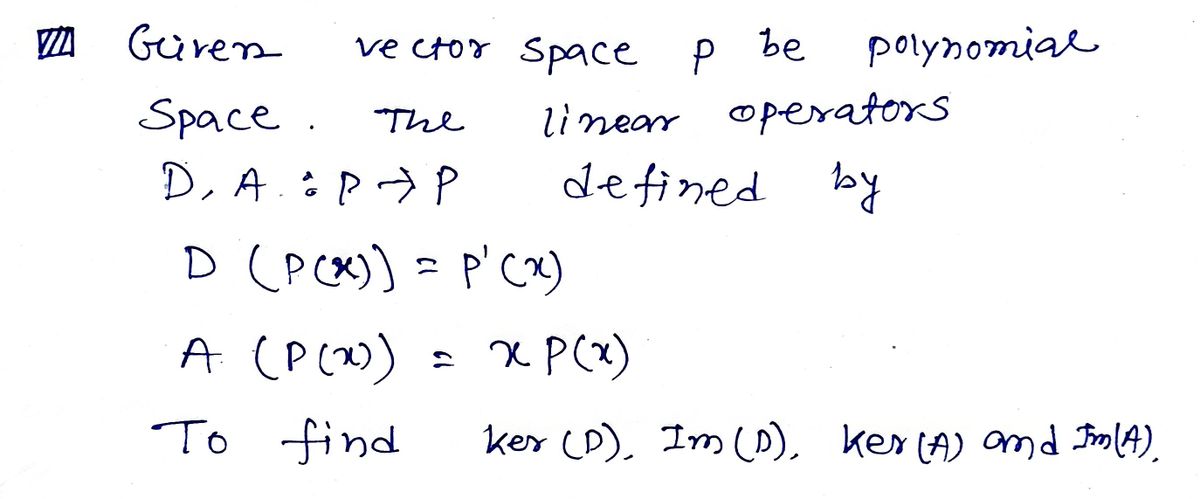 Given vector space p be polynomial
Space. The linear operators
D, A : P → P defined by
D (P(x)) = P'(x)
A (P(x)) = x P(x)
To find ker (D), Im (D), ker (A) and Im(A).